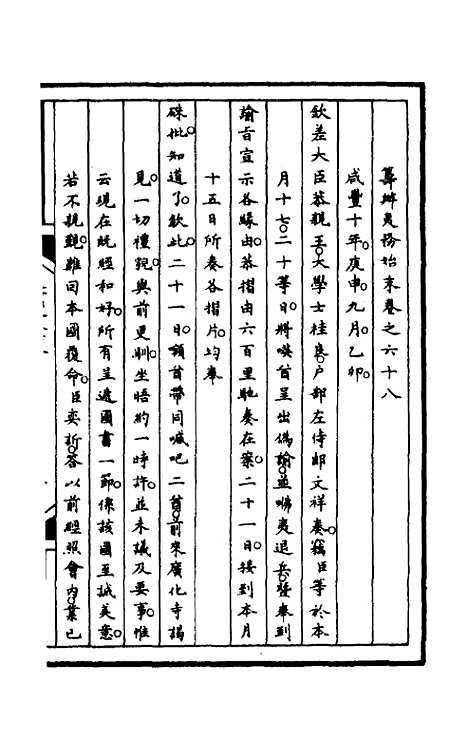 籌辦夷務始末卷之六十八
咸豐十年庚申九月乙卯
欽差大臣恭親王大學士桂良戶部左侍郎文祥奏竊臣等於本
月十七二十等日將𠸄酋呈出偽諭並㗲夷退兵暨奉到
諭旨宣示各緣由恭摺由六百里馳奏在案二十一日接到本月
十五日所奏各摺片均奉
硃批知道了欽此二十一日領酋帶同喊吧二酋前來廣化寺謁
見一切禮貌與前更馴坐晤約一時許並未議及要事惟
云現在既經和好所有呈遞國書一節係該國至誠美意
若不親覲難回本國覆命臣奕訢答以前經照會內業已